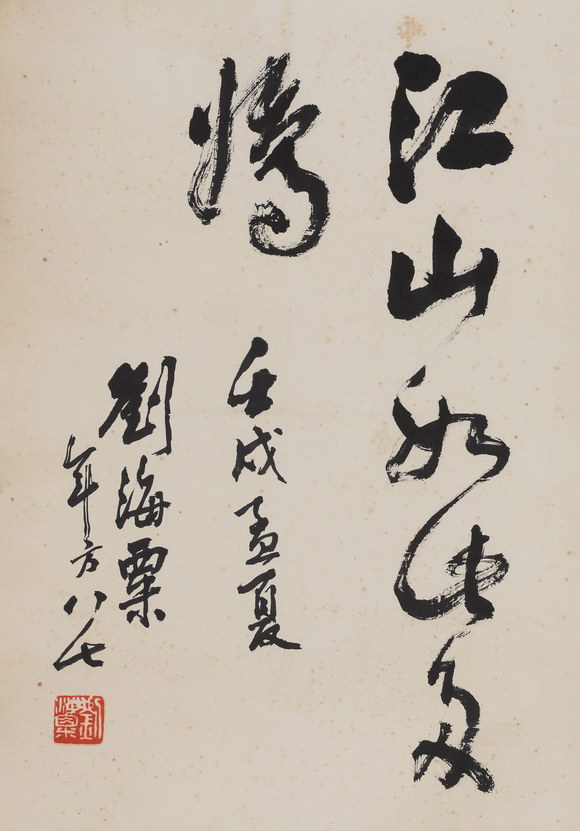 江山如此多
嬌
壬戌孟夏
劉海粟
年方八七
劉海粟